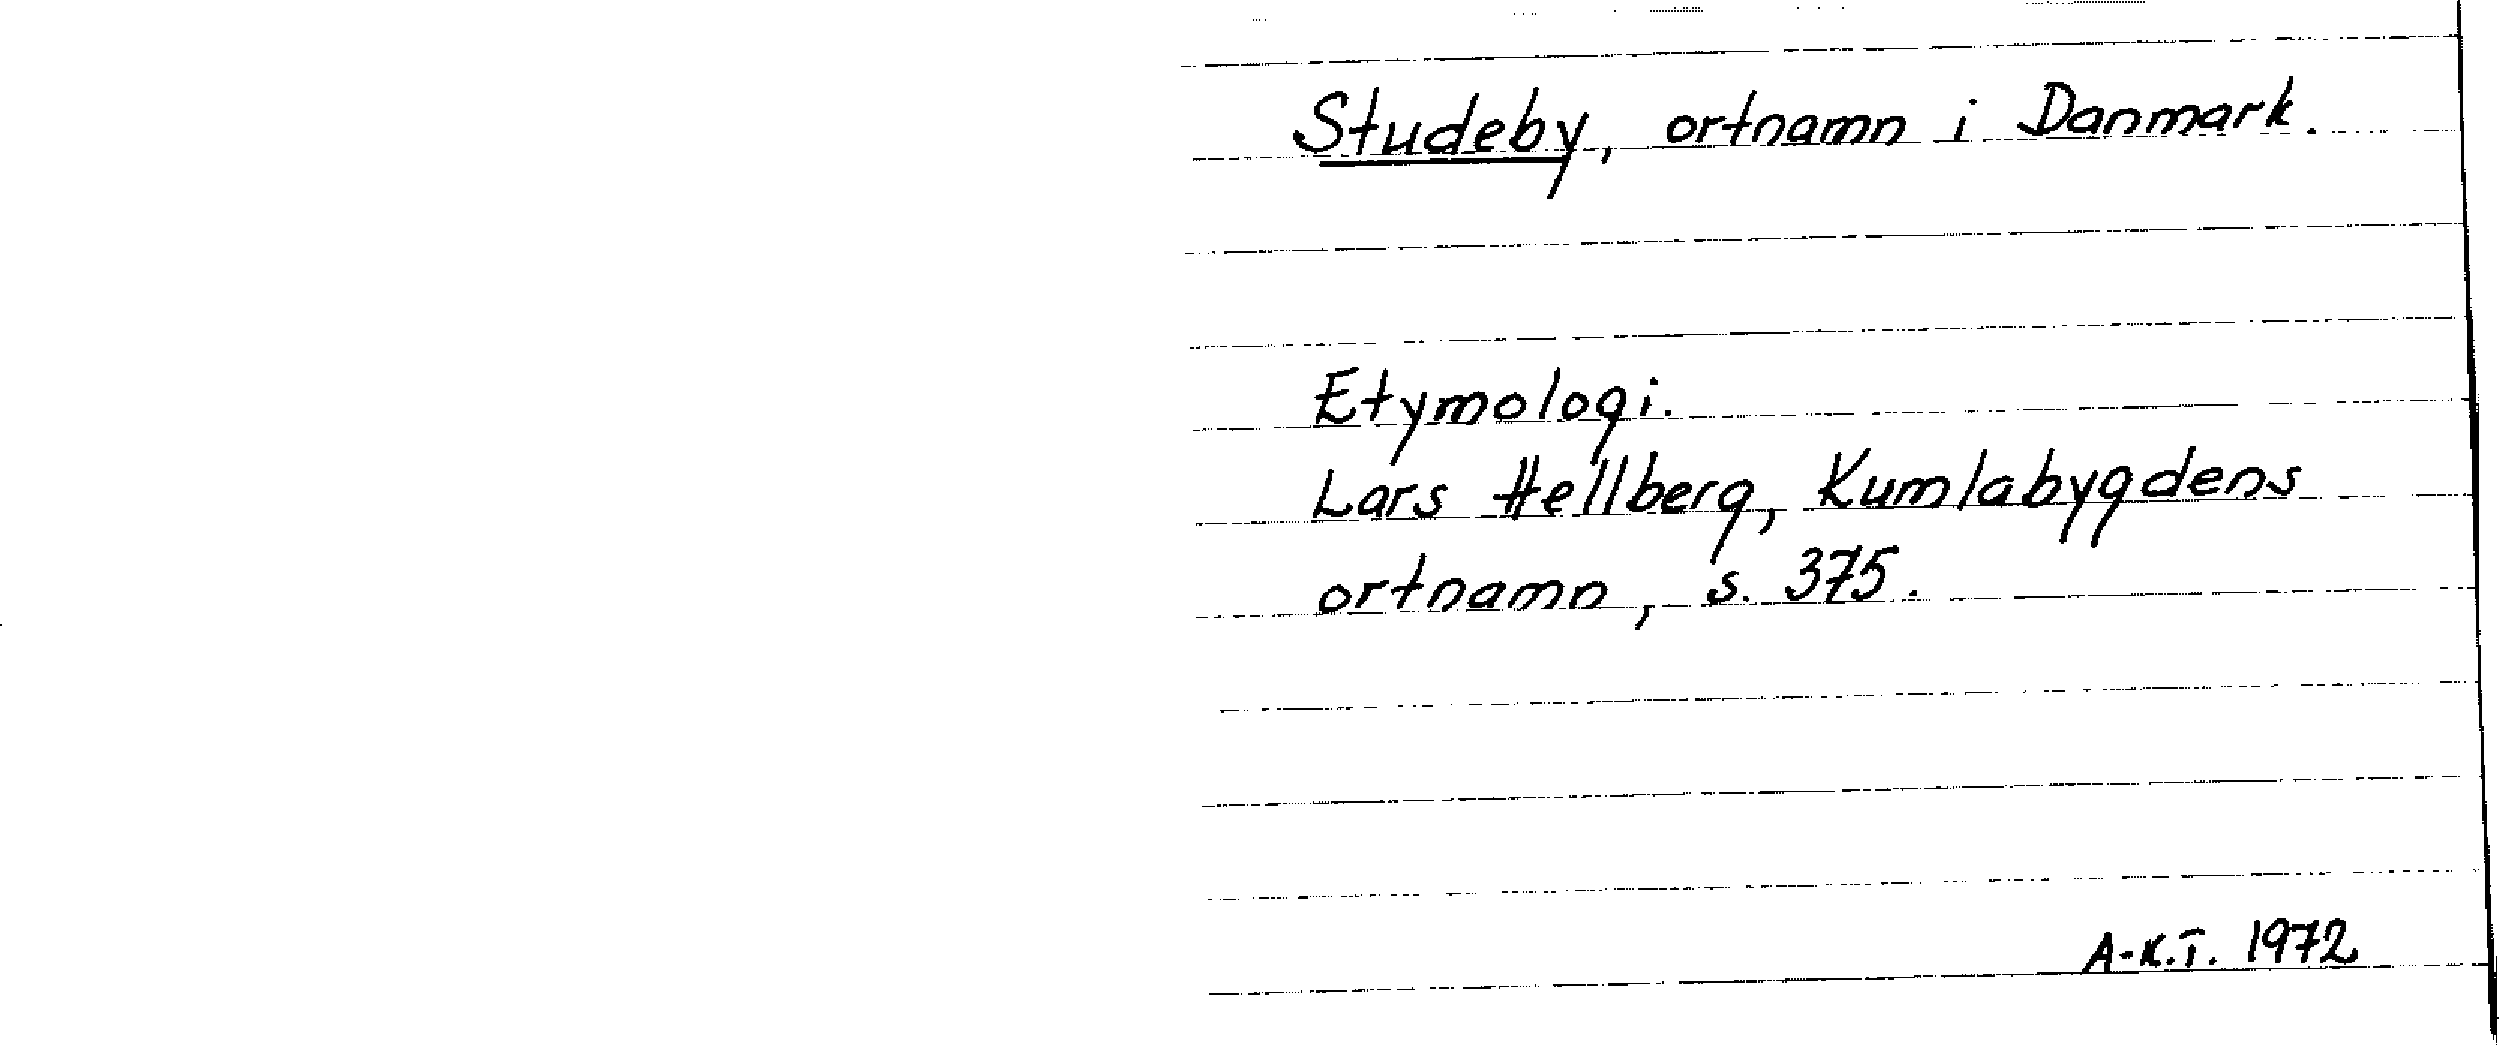 Studeby, ortnamn i Danmark.
Etymologi.
Lars Hellberg, Kumlabygdens
ortnamn, s. 375.
A-K.T. 1972